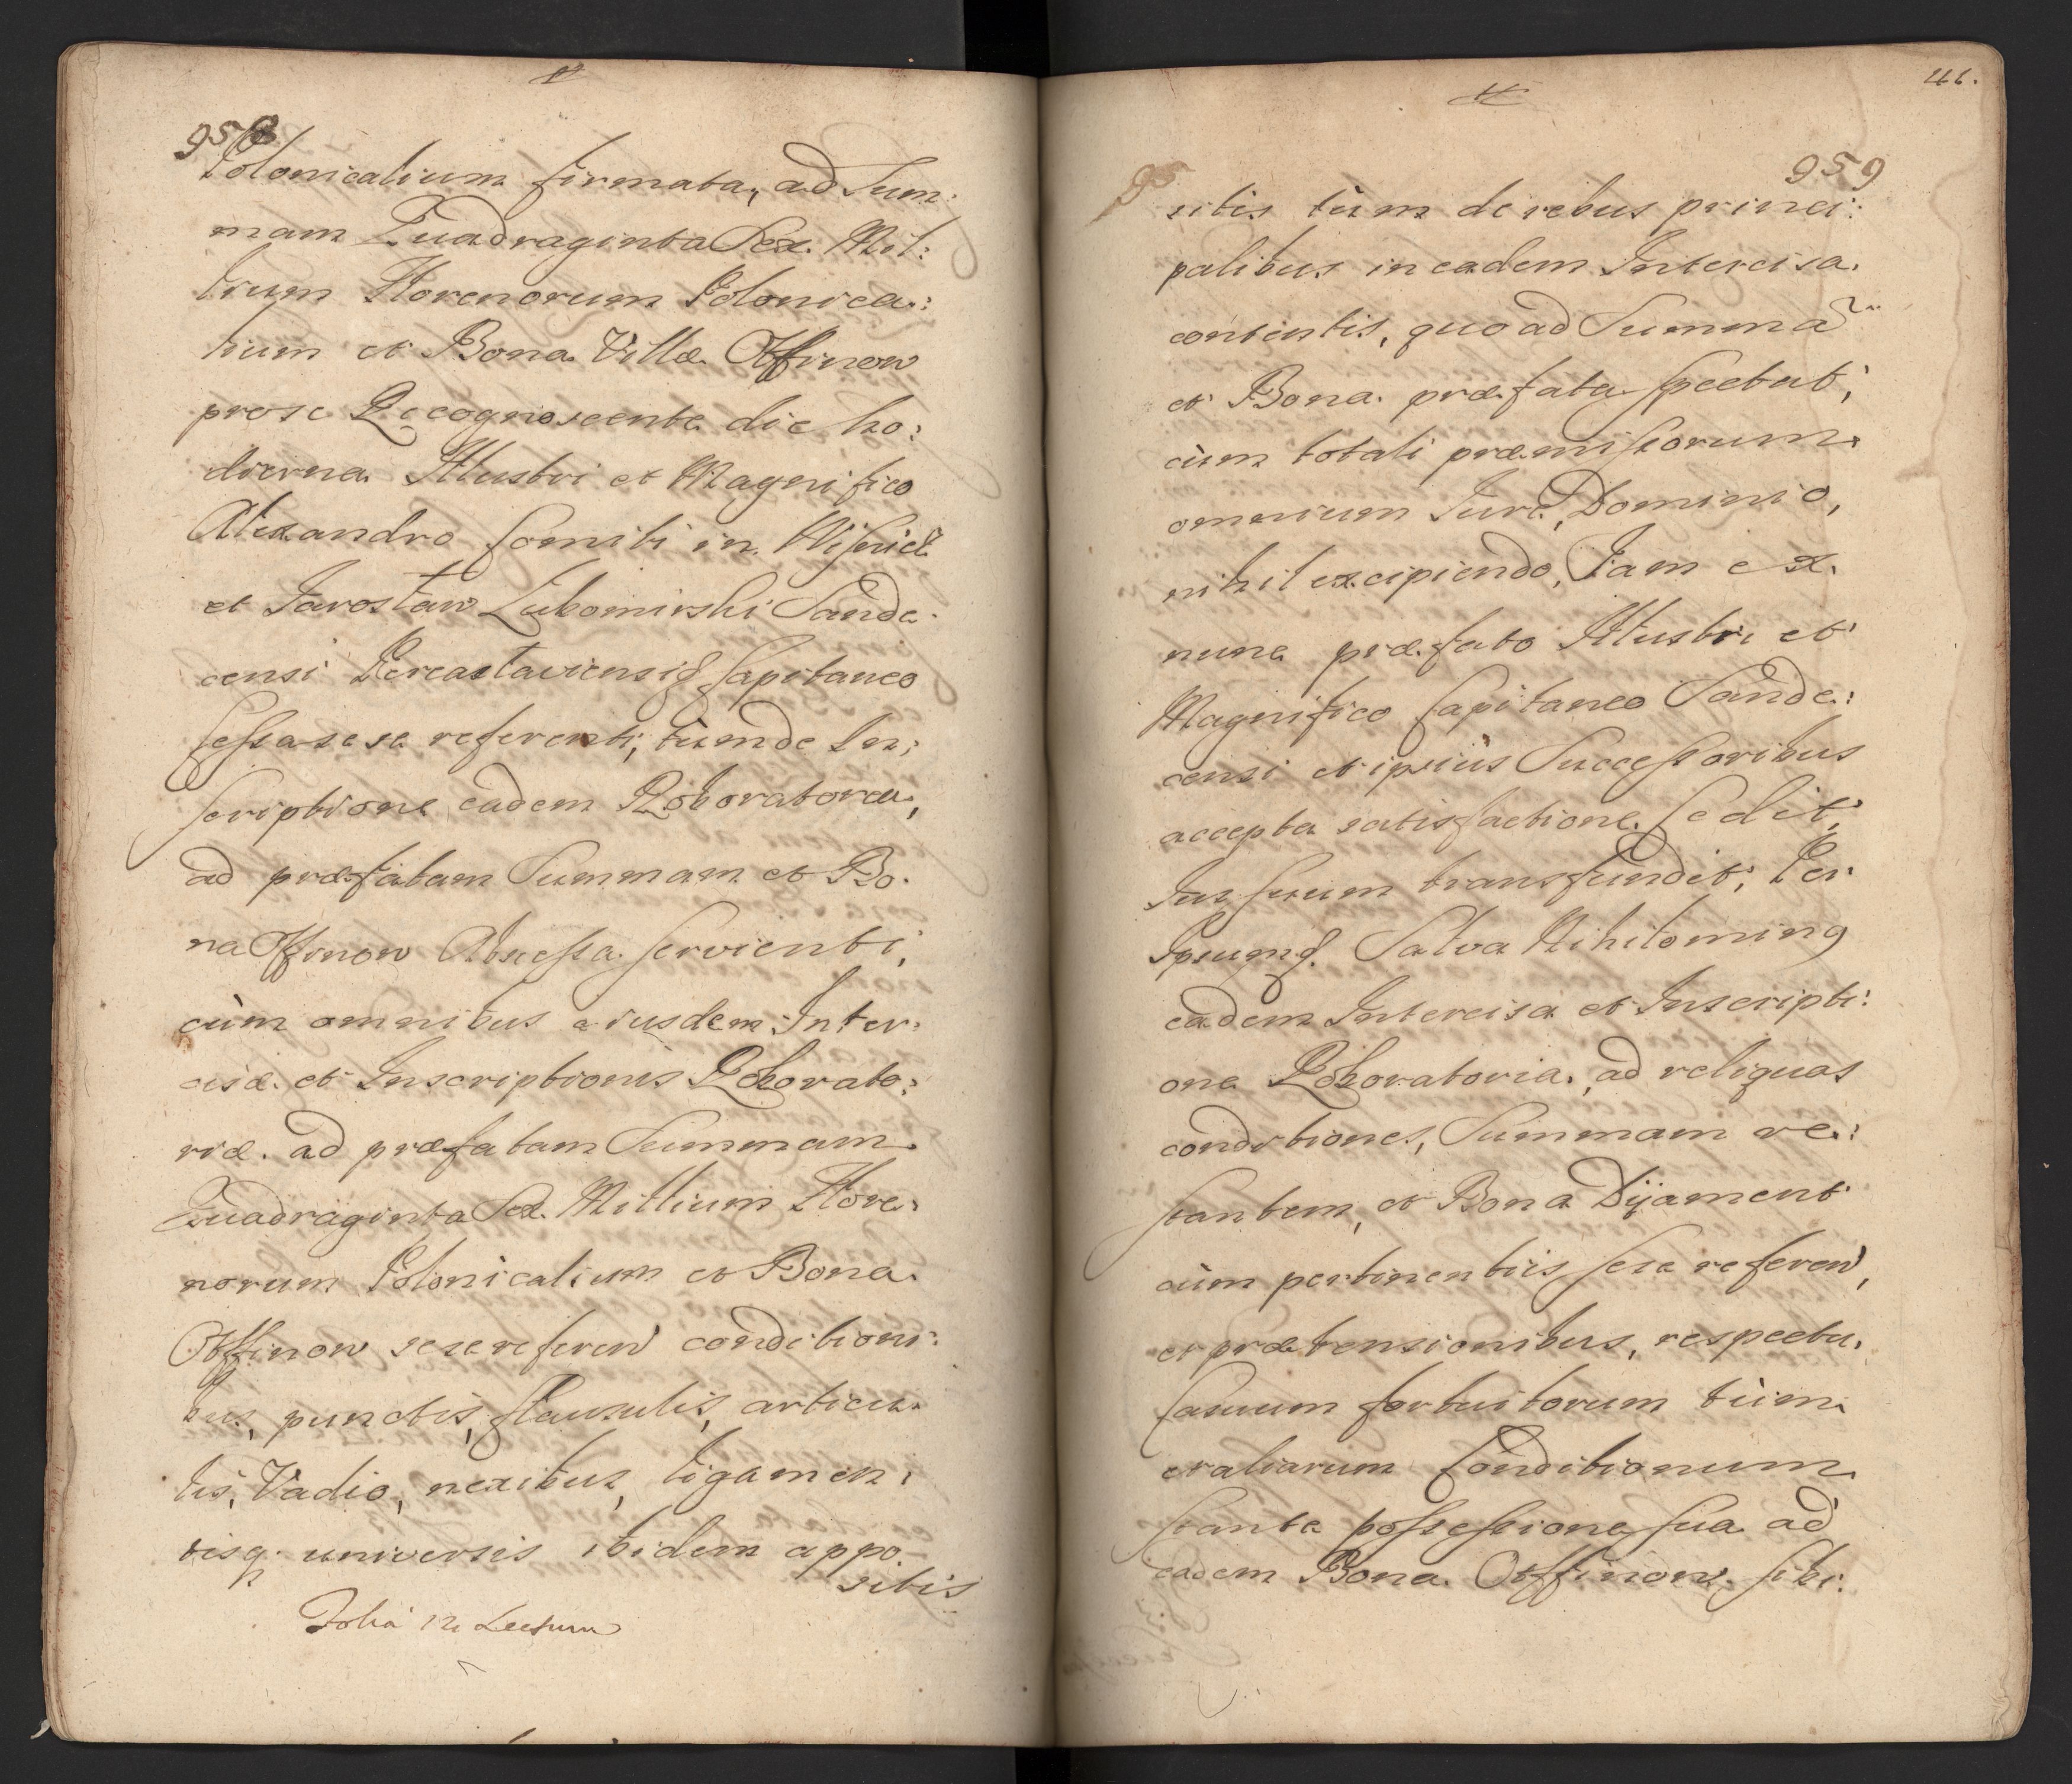 958
Polonicalium firmata, ad Sum:
mam Quadraginta Sex Mil:
lium Florenorum Polonica:
lium et Bona Villæ Offinow
prose Recognoscente die ho:
dierna Illustri et Magnifico
Alexandro Comiti in Wisnicz
et Jarosław Lubomirski Sande
censi Pereasłaviensiq Capitaneo
Cessa sese referenti, tùm de In:
scriptione eadem Roboratoria,
ad præfatam Summam et Bo.
na Offinow Abnessa servienti,
cùm omnibus eiusdem Inter:
cisæ et Inscriptionis Roborato:
riæ ad præfatam Summam
Quadraginta Sex Millium Flore:
norum Polonicalium et Bona
Offinow sese referen conditioni:
bus, punctis, Clausulis, articu:
lis, Vadio, nexibus, ligamen:
tisq universis ibidem appo:
sitis
Folia 12 Lectum
46.
95
959
sitis tùm de rebus princi:
palibus in eadem Intercisa
contentis, quo ad Summã
et Bona præfata spectat,
cùm totali præmissorum
omnium Jure, Dominio,
nihil excipiendo, Jam ex
nunc præfato Illustri et
Magnifico Capitaneo Sande:
censi et ipsiùs Successoribus
accepta satisfactione Cedit,
Jus suum transfundit, Per
Ipsumq. Salva Nihilominq
eadem Intercisa et Inscripti:
one Roboratoria, ad reliquas
conditiones, Summam re:
stantem, et Bona Dijament
cùm pertinentiis sese referen,
et prætensionibus, respectu
Casuum fortuitorum tùm
et aliarum Conditionum
stante possessione sua ad
eadem Bona Offinow sibi